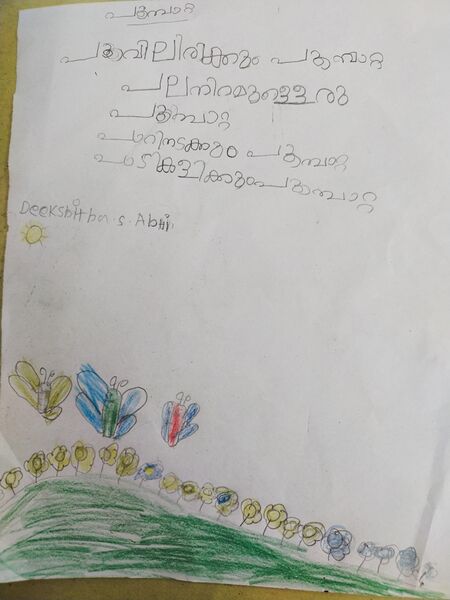 പൂമ്പാറ്റ
പൂവിലിരിക്കും പൂമ്പാറ്റ
പലനിറമുള്ളൊരു
പൂമ്പാറ്റ
പാറിനടക്കും പൂമ്പാറ്റ
പാടികളിക്കുംപൂമ്പാറ്റ
Deekshitha.S.Abhi